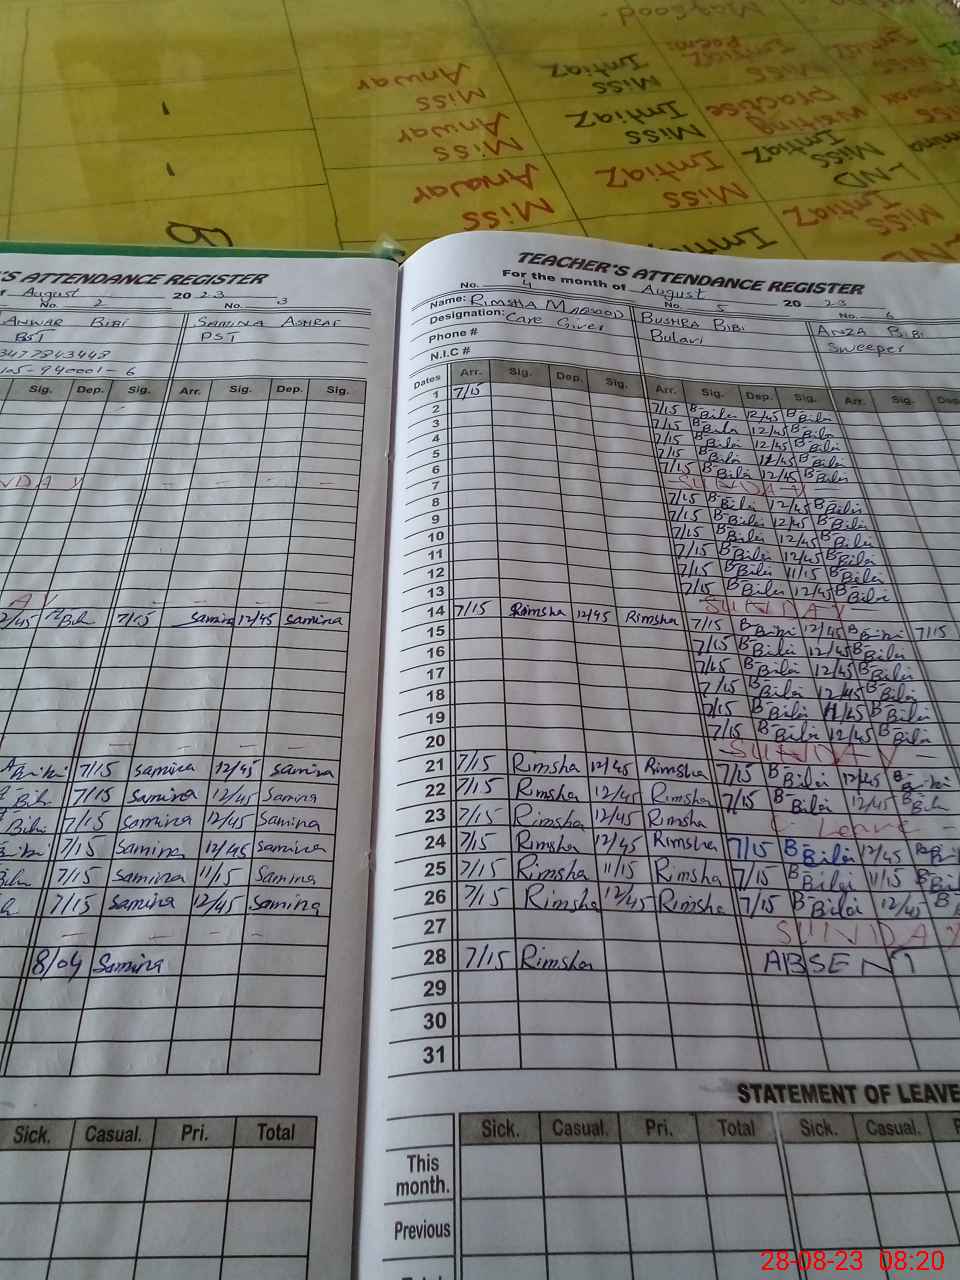 Maqsood
Miss Anwar
Miss Imtiaz
Imtiaz Poem
Miss Anwar
Miss Imtiaz
Writing practise
Miss Anwar
Miss Imtiaz
Miss Imtiaz
L-ND
'S ATTENDANCE REGISTER
August 2023
No. 2 No. 3
ANWAR BIBI SAMINA ASHRAF
PST PST
Sig. Dep. Sig. Arr. Sig. Dep. Sig.
NDAY - - - -
AY - - - -
2/45 7/15 Samina 12/45 samina
- - - -
7/15 samina 12/45 samina
7/15 Samina 12/45 Samina
7/15 Samina 12/45 Samina
7/15 Samina 12/45 samina
7/15 Samina 11/15 Samina
7/15 Samina 12/45 Samina
- - - -
8/04 Samina
Sick. Casual. Pri. Total
TEACHER'S ATTENDANCE REGISTER
For the month of August 2023
No. 4 No. 5 No. 6
Name: RIMSHA MAQSOOD BUSHRA BIBI ANZA BIBI
Designation: Care Giver Bulavi Sweeper
Phone #
N.I.C #
Dates Arr. Sig. Dep. Sig. Arr. Sig. Dep. Sig. Arr. Sig. Dep
1 7/15
2 7/15 B-Bibi 12/45 B-Bibi
3 7/15 B-Bibi 12/45 B-Bibi
4 7/15 B-Bibi 12/45 B-Bibi
5 7/15 B-Bibi 11/45 B-Bibi
6 7/15 B-Bibi 12/45 B-Bibi
7 SUNDAY
8 7/15 B-Bibi 12/45 B-Bibi
9 7/15 B-Bibi 12/45 B-Bibi
10 7/15 B-Bibi 12/45 B-Bibi
11 7/15 B-Bibi 12/45 B-Bibi
12 7/15 B-Bibi 11/15 B-Bibi
13 7/15 B-Bibi 12/45 B-Bibi
SUNDAY
14 7/15 Rimsha 12/45 Rimsha 7/15 B-Bibi 12/45 B-Bibi 7/15
15 7/15 B-Bibi 12/45 B-Bibi
16 7/15 B-Bibi 12/45 B-Bibi
17 7/15 B-Bibi 12/45 B-Bibi
18 7/15 B-Bibi 11/45 B-Bibi
19 7/15 B-Bibi 12/45 B-Bibi
20 SUNDAY -
21 7/15 Rimsha 12/45 Rimsha 7/15 B-Bibi 12/45 B-Bibi
22 7/15 Rimsha 12/45 Rimsha 7/15 B-Bibi 12/45 B-Bibi
23 7/15 Rimsha 12/45 Rimsha C-Leave -
24 7/15 Rimsha 12/45 Rimsha 7/15 B-Bibi 12/45 B-Bibi
25 7/15 Rimsha 11/15 Rimsha 7/15 B-Bibi 11/15 B-Bibi
26 7/15 Rimsha 12/45 Rimsha 7/15 B-Bibi 12/45 B
27 SUNDAY
28 7/15 Rimsha ABSENT
29
30
31
STATEMENT OF LEAVE
Sick. Casual. Pri. Total Sick. Casual. P
This month.
Previous
28-08-23 08:20